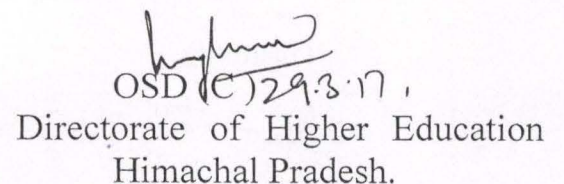 OSD (C) 29.3.17,
Directorate of Higher Education
Himachal Pradesh.